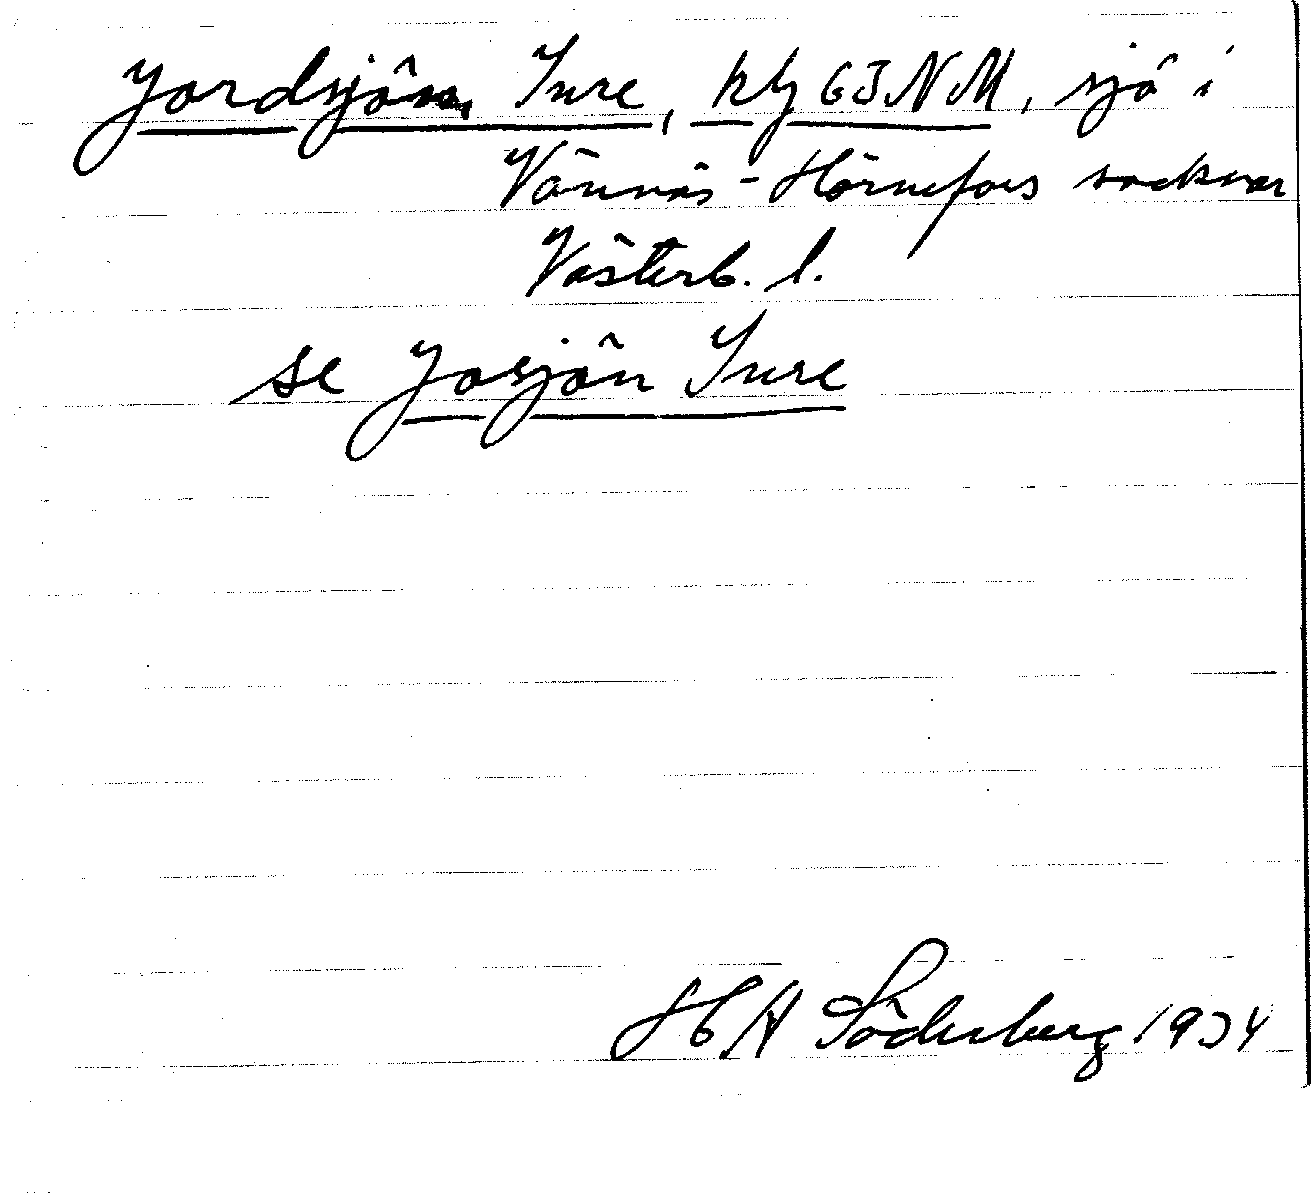 Jordsjön, Inre, kbl 63 NM, sjö i
Vännäs - Hörnefors socknar
Västerb. l.
se Josjön Inre
H A Söderberg 1934